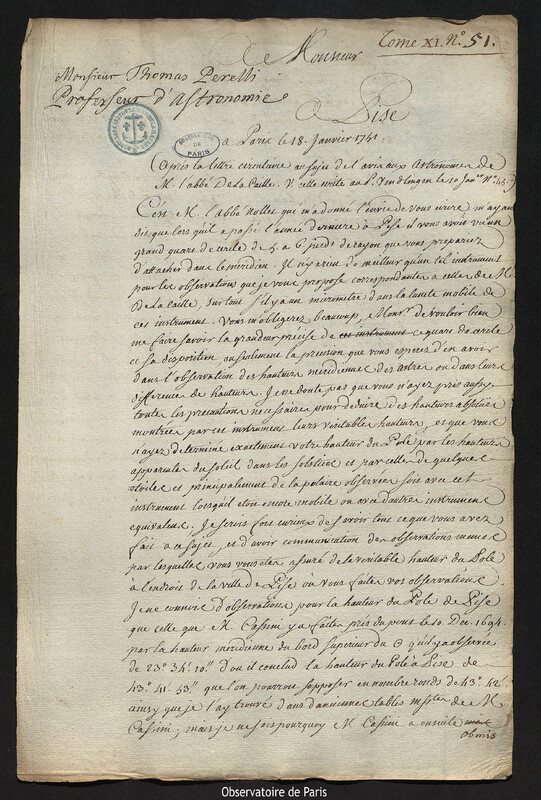 Tome XI. N.º 51.
Monsieur
Monsieur Thomas Perelli
Professeur d'Astronomie
a Pise
OBSERVATOIRE DE PARIS
a Paris le 18. Janvier 1751.
(Après la lettre circulaire au sujet de l'avis aux Astronomes de
M. l'abbé De la Caille. V. celle écrite au P. Vendlingen le 10 Janv.er N.º 45.)
C'est M. l'abbé Nollet qui m'a donné l'envie de vous ecrire, m'ayant
dit que lors qu'il a passé l'année derniere à Pise il vous avoit vu un
grand quart de cercle de 5 a 6 pieds de rayon que vous prepariez
d'attacher dans le meridien. Il n'y a rien de meilleur qu'un tel instrument
pour les observations que je vous propose correspondantes a celles de M.
De la Caille, sur tout s'il y a un micrometre dans la lunete mobile de
cet instrument. Vous m'obligerez beaucoup, Mons.r de vouloir bien
me faire savoir la grandeur précise de cet instrument ce quart de cercle
et sa disposition aussi bien que la precision que vous esperez d'en avoir
dans l'observation des hauteurs meridiennes des astres ou dans leurs
difference de hauteurs. Je ne doute pas que vous n'ayez pris aussy
toutes les precautions necessaires pour deduire des hauteurs absolues
montrées par cet instrument leurs veritables hauteurs, et que vous
n'ayez determiné exactement votre hauteur du Pole par les hauteurs
apparentes du soleil dans les solstices et par celles de quelques
etoiles et principalement de la polaire observées soit avec cet
instrument lorsqu'il etoit encore mobile ou avec d'autres instrumens
equivalens. Je serois fort curieux de savoir tout ce que vous avez
fait a ce sujet, et d'avoir communication des observations memes
par lesquelles vous vous etes assuré de la veritable hauteur du Pole
à l'endroit de la ville de Pise où vous faites vos observations.
Je ne connois d'observations pour la hauteur du Pole de Pise
que celle que M. Cassini y a faites près du pont le 10. Dec. 1694.
par la hauteur meridienne du bord superieur du ☉ qu'il y a observée
de 23º 34'. 10". d'ou il conclud la hauteur du Pole à Pise de
43º. 41'. 53". que l'on pourroit supposer en nombre ronds de 43º. 42'.
ainsy que je l'ay trouvé dans d'anciennes tables msstes de M.
Cassini; mais je ne sais pourquoy M. Cassini a ensuite
obmis
Observatoire de Paris